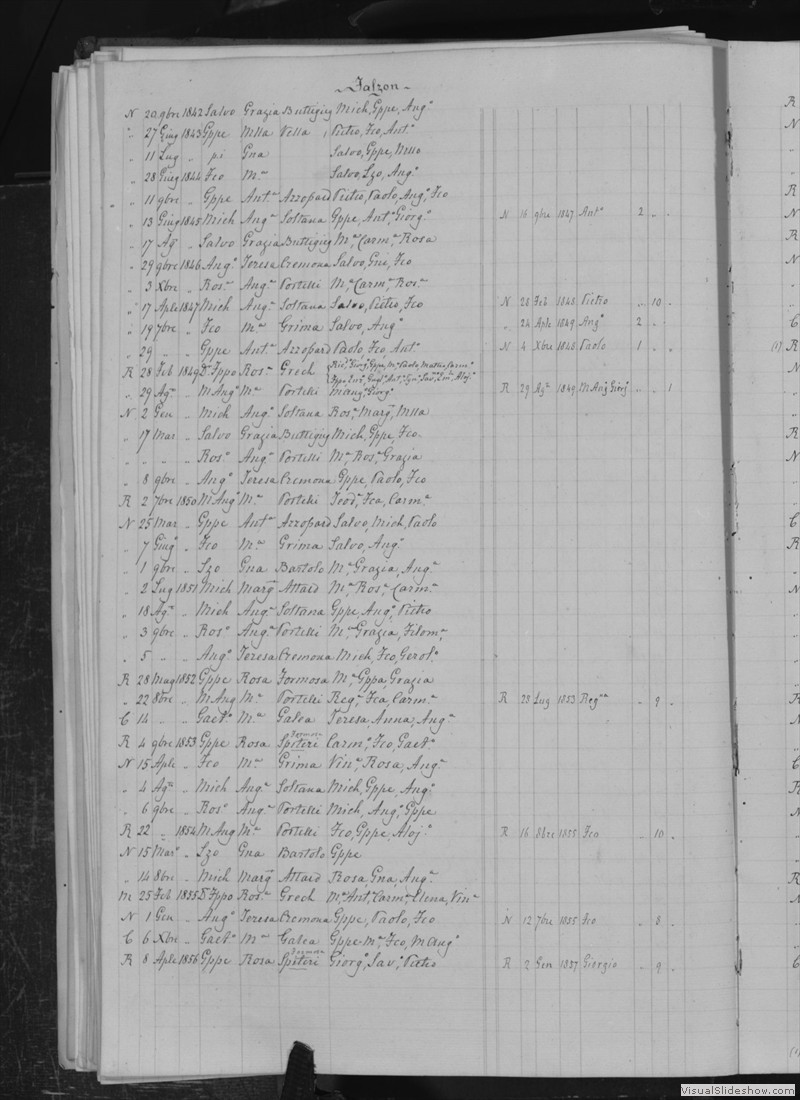 Falzon
N 20 9bre 1842 Salvo Grazia Buttigieg Mich, Gppe, Angº
" 27 Giug 1843 Gppe Mlla Vella Pietro, Fco, Antº
" 11 Lug " pi Gna Salvo, Gppe, Mllo
" 28 Giug 1844 Fco Mª Salvo, Lzo, Angº
" 11 9bre " Gppe Antª Azzopard Pietro, Paolo, Angº, Fco
" 13 Giug 1845 Mich Angª Soltana Gppe, Antº, Giorgº N 16 9bre 1847 Antº 2 " "
" 17 Agº " Salvo Grazia Buttigieg Mª, Carmª, Rosa
" 29 9bre 1846 Angº Teresa Cremona Salvo, Gne, Fco
" 3 Xbre " Rosº Angª Portelli Mª, Carmª, Rosª
" 17 Aple 1847 Mich Angª Soltana Salvo, Pietro, Fco N 28 Feb 1848 Pietro " 10 "
" 19 7bre " Fco Mª Grima Salvo, Angº " 24 Aple 1849 Angº 2 " "
" 29 " " Gppe Antª Azzopard Paolo, Fco, Antº N 4 Xbre 1848 Paolo 1 " "
R 28 Feb 1849 Dr Fppo Rosª Grech
" 29 Agº " M Angº Mª Portelli Giorgº R 29 Agº 1849 M Angº Giorgº " " 1
N 2 Gen " Mich Angª Soltana Rosª, Margª, Mlla
" 17 Mar " Salvo Grazia Buttigieg Mich, Gppe, Fco
" " " " Rosº Angª Portelli Mª, Rosª, Grazia
" 8 9bre " Angº Teresa Cremona Gppe, Paolo, Fco
R 2 7bre 1850 M Angº Mª Portelli Teodª, Fca, Carmª
N 25 Mar " Gppe Antª Azzopard Salvo, Mich, Paolo
" 7 Giugº " Fco Mª Grima Salvo, Angº
" 1 9bre " Lzo Gna Bartolo Mª, Grazia, Angª
" 2 Lug 1851 Mich Margª Attard Mª, Rosª, Carmª
" 18 Agº " Mich Angª Soltana Gppe, Angº, Pietro
" 3 9bre " Rosº Angª Portelli Mª, Grazia, Filomª
" 5 " " Angº Teresa Cremona Mich, Fco, Gerolº
R 28 Mag 1852 Gppe Rosa Formosa Mª, Gppa, Grazia
" 22 8bre " M Ang Mª Portelli Regª, Fca, Carmª R 28 Lug 1853 Regna " 9 "
C 14 " " Gaetº Mª Galea Teresa, Anna, Angª
Formosa
R 4 9bre 1853 Gppe Rosa Spiteri Carmº, Fco, Gaetº
N 15 Aple " Fco Mª Grima Vinª, Rosa, Angª
" 4 Agº " Mich Angª Soltana Mich, Gppe, Angº
" 6 9bre " Rosº Angª Portelli Mich, Angº, Gppe
R 22 " 1854 M Ang Mª Portelli Fco, Gppe, Alojº R 16 8bre 1855 Fco " 10 "
N 15 Marº " Lzo Gna Bartolo Gppe
" 14 8bre " Mich Margª Attard Rosa, Gna, Angª
M 25 Feb 1855 Dr Fppo Rosª Grech Mª Antª, Carmª, Elena, Vinª
N 1 Gen " Angº Teresa Cremona Gppe, Paolo, Fco N 12 7bre 1855 Fco " 8 "
C 6 Xbre " Gaetº Mª Galea Gppe Mª, Fco, M Angº
Formosa
R 8 Aple 1856 Gppe Rosa Spiteri Giorgº, Savº, Pietro R 2 Gen 1857 Giorgio " 9 "
VisualSlideshow.com